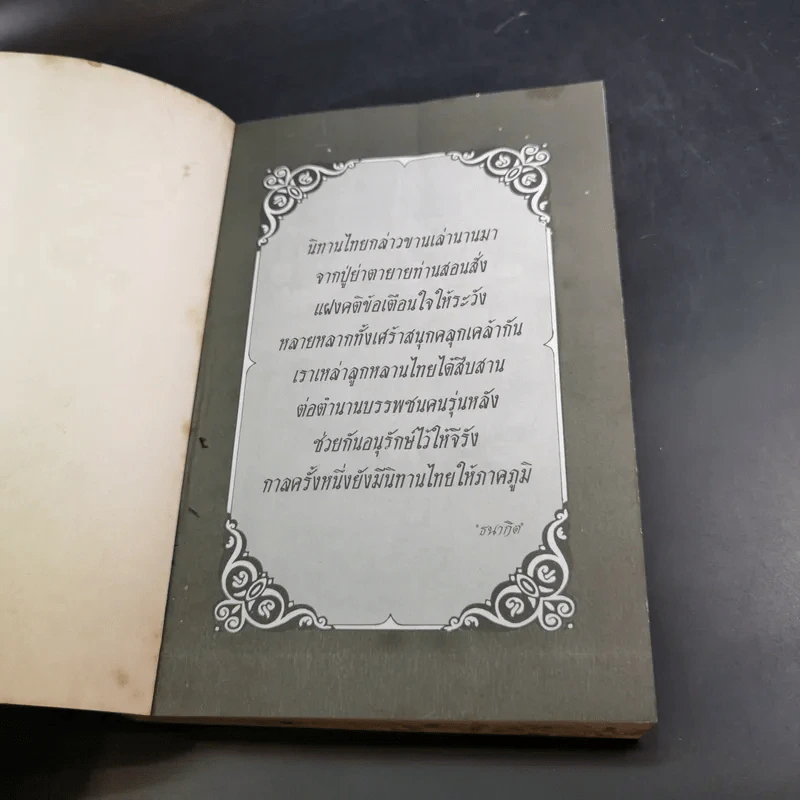 นิทานไทยกล่าวขานเล่านานมา
จากปู่ย่าตายายท่านสอนสั่ง
แฝงคติข้อเตือนใจให้ระวัง
หลายหลากทั้งเศร้าสนุกคลุกเคล้ากัน
เราเหล่าลูกหลานไทยได้สืบสาน
ต่อตำนานบรรพชนคนรุ่นหลัง
ช่วยกันอนุรักษ์ไว้ให้จีรัง
กาลครั้งหนึ่งยังมีนิทานไทยให้ภาคภูมิ
"ธนากิต"